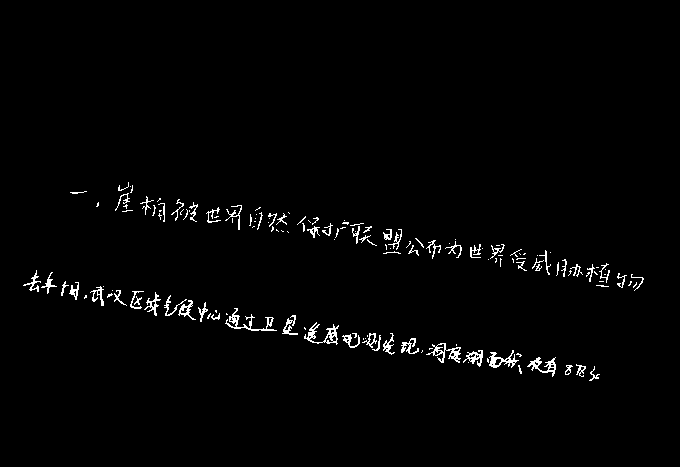 一，崖柏被世界自然保护联盟公布为世界受威胁植物
去年十月，武汉区域气候中心通过卫星遥感观测发现，洞庭湖面积仅有